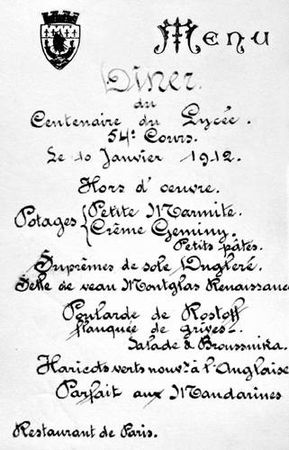 Menu
Dîner
du
Centenaire du Lycée.
54e Cours.
Le 10 Janvier 1912.
Hors d'œuvre.
Potages { Petite Marmite.
Crème Germiny.
Petits pâtés.
Suprêmes de sole Dugléré.
Selle de veau Montglas Renaissance
Poularde de Rostoff
flanquée de grives.
Salade à Broussnika.
Haricots verts nouvx à l'Anglaise
Parfait aux Mandarines
Restaurant de Paris.